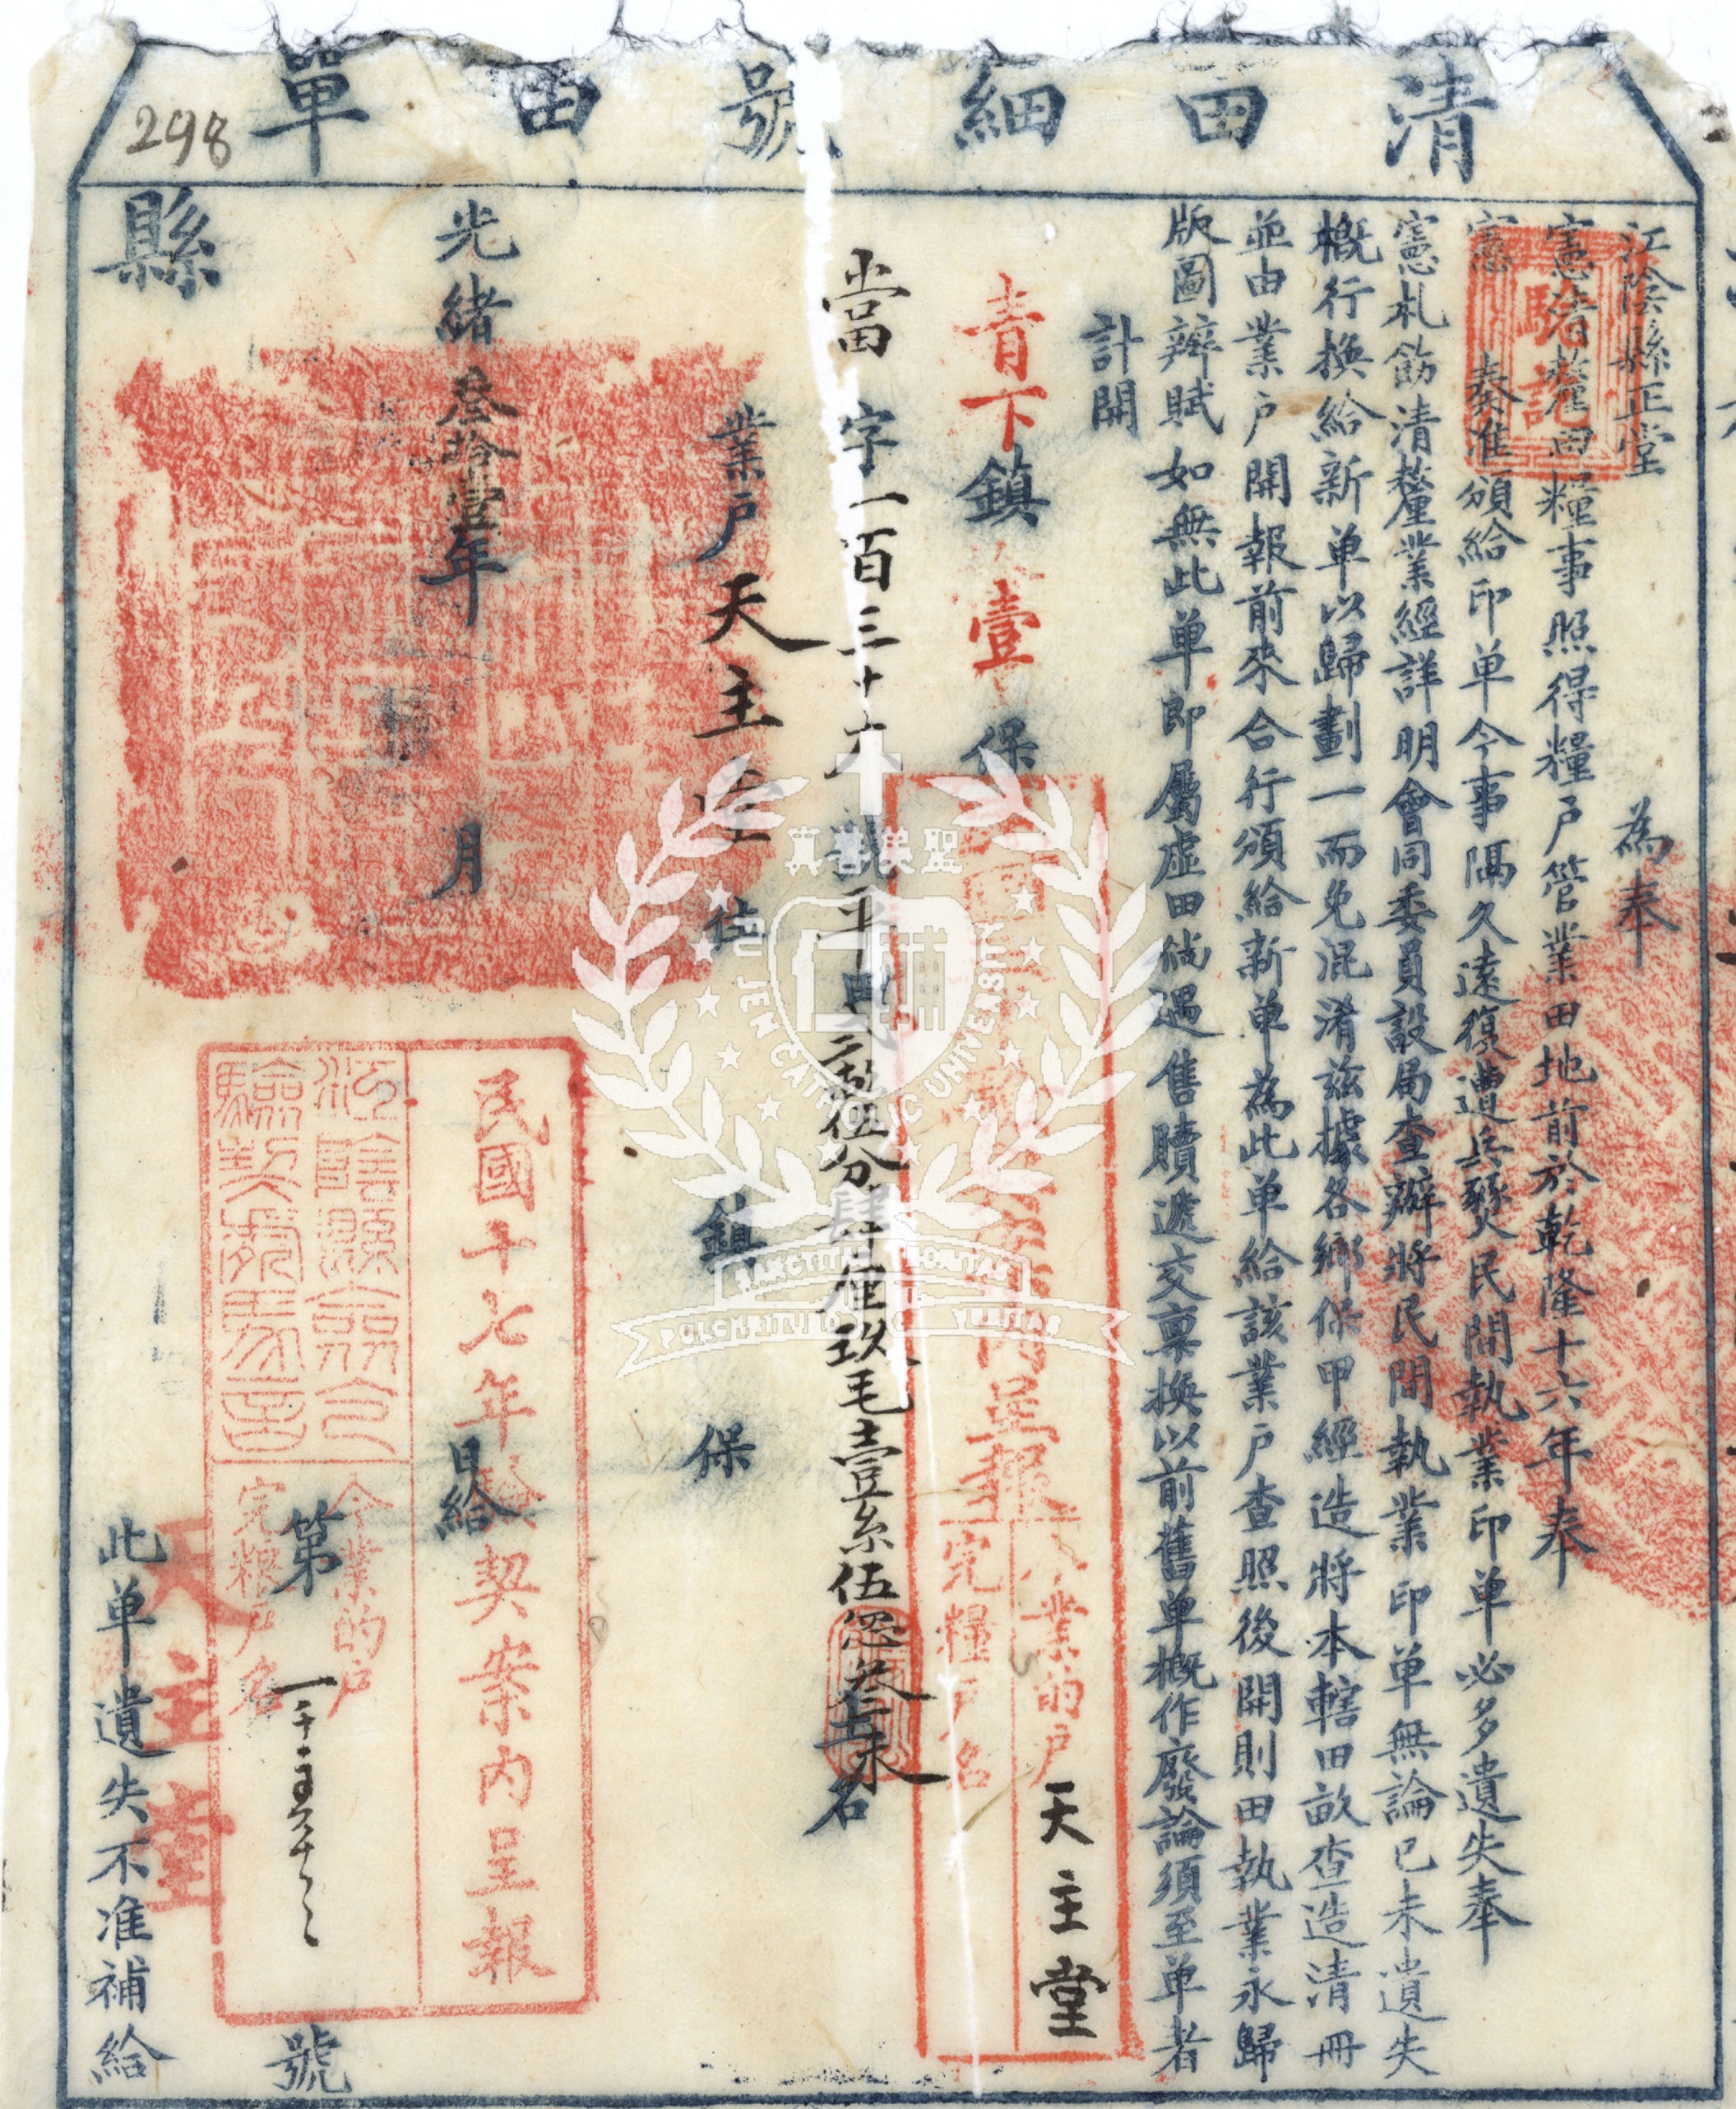 清田細號田單
298
江陰縣正堂 為奉
憲清釐田糧事照得糧戶管業田地前於乾隆十六年奉
憲 奏准頒給印单今事隔久遠復遭兵燹民間執業印单必多遺失奉
憲札飭清釐業經詳明會同委員設局查辦將民間執業印单無論已未遺失
概行換給新单以歸劃一而免混淆茲據各鄉保甲經造將本轄田畝查造清冊
並由業戶開報前來合行頒給新单為此单給該業戶查照後開則田執業永歸
版圖辦賦如無此单即屬虛田倘遇售贖遞交稟換以前舊单概作廢論須至单者
計開
青下鎮壹保
當字一百三十
號平田
伍分肆厘玖毛壹糸伍忽叁末
名
業戶天主堂住 鎮 保
光緒叁拾壹年 月 日給
縣
第 號
此单遺失不准補給
驗訖
呈報
今業的戶 天主堂
完糧戶名
民國十七年驗契案內呈報
今業的戶
完糧戶名
天主堂
聖美善真
FU JEN CATHOLIC UNIVERSITY